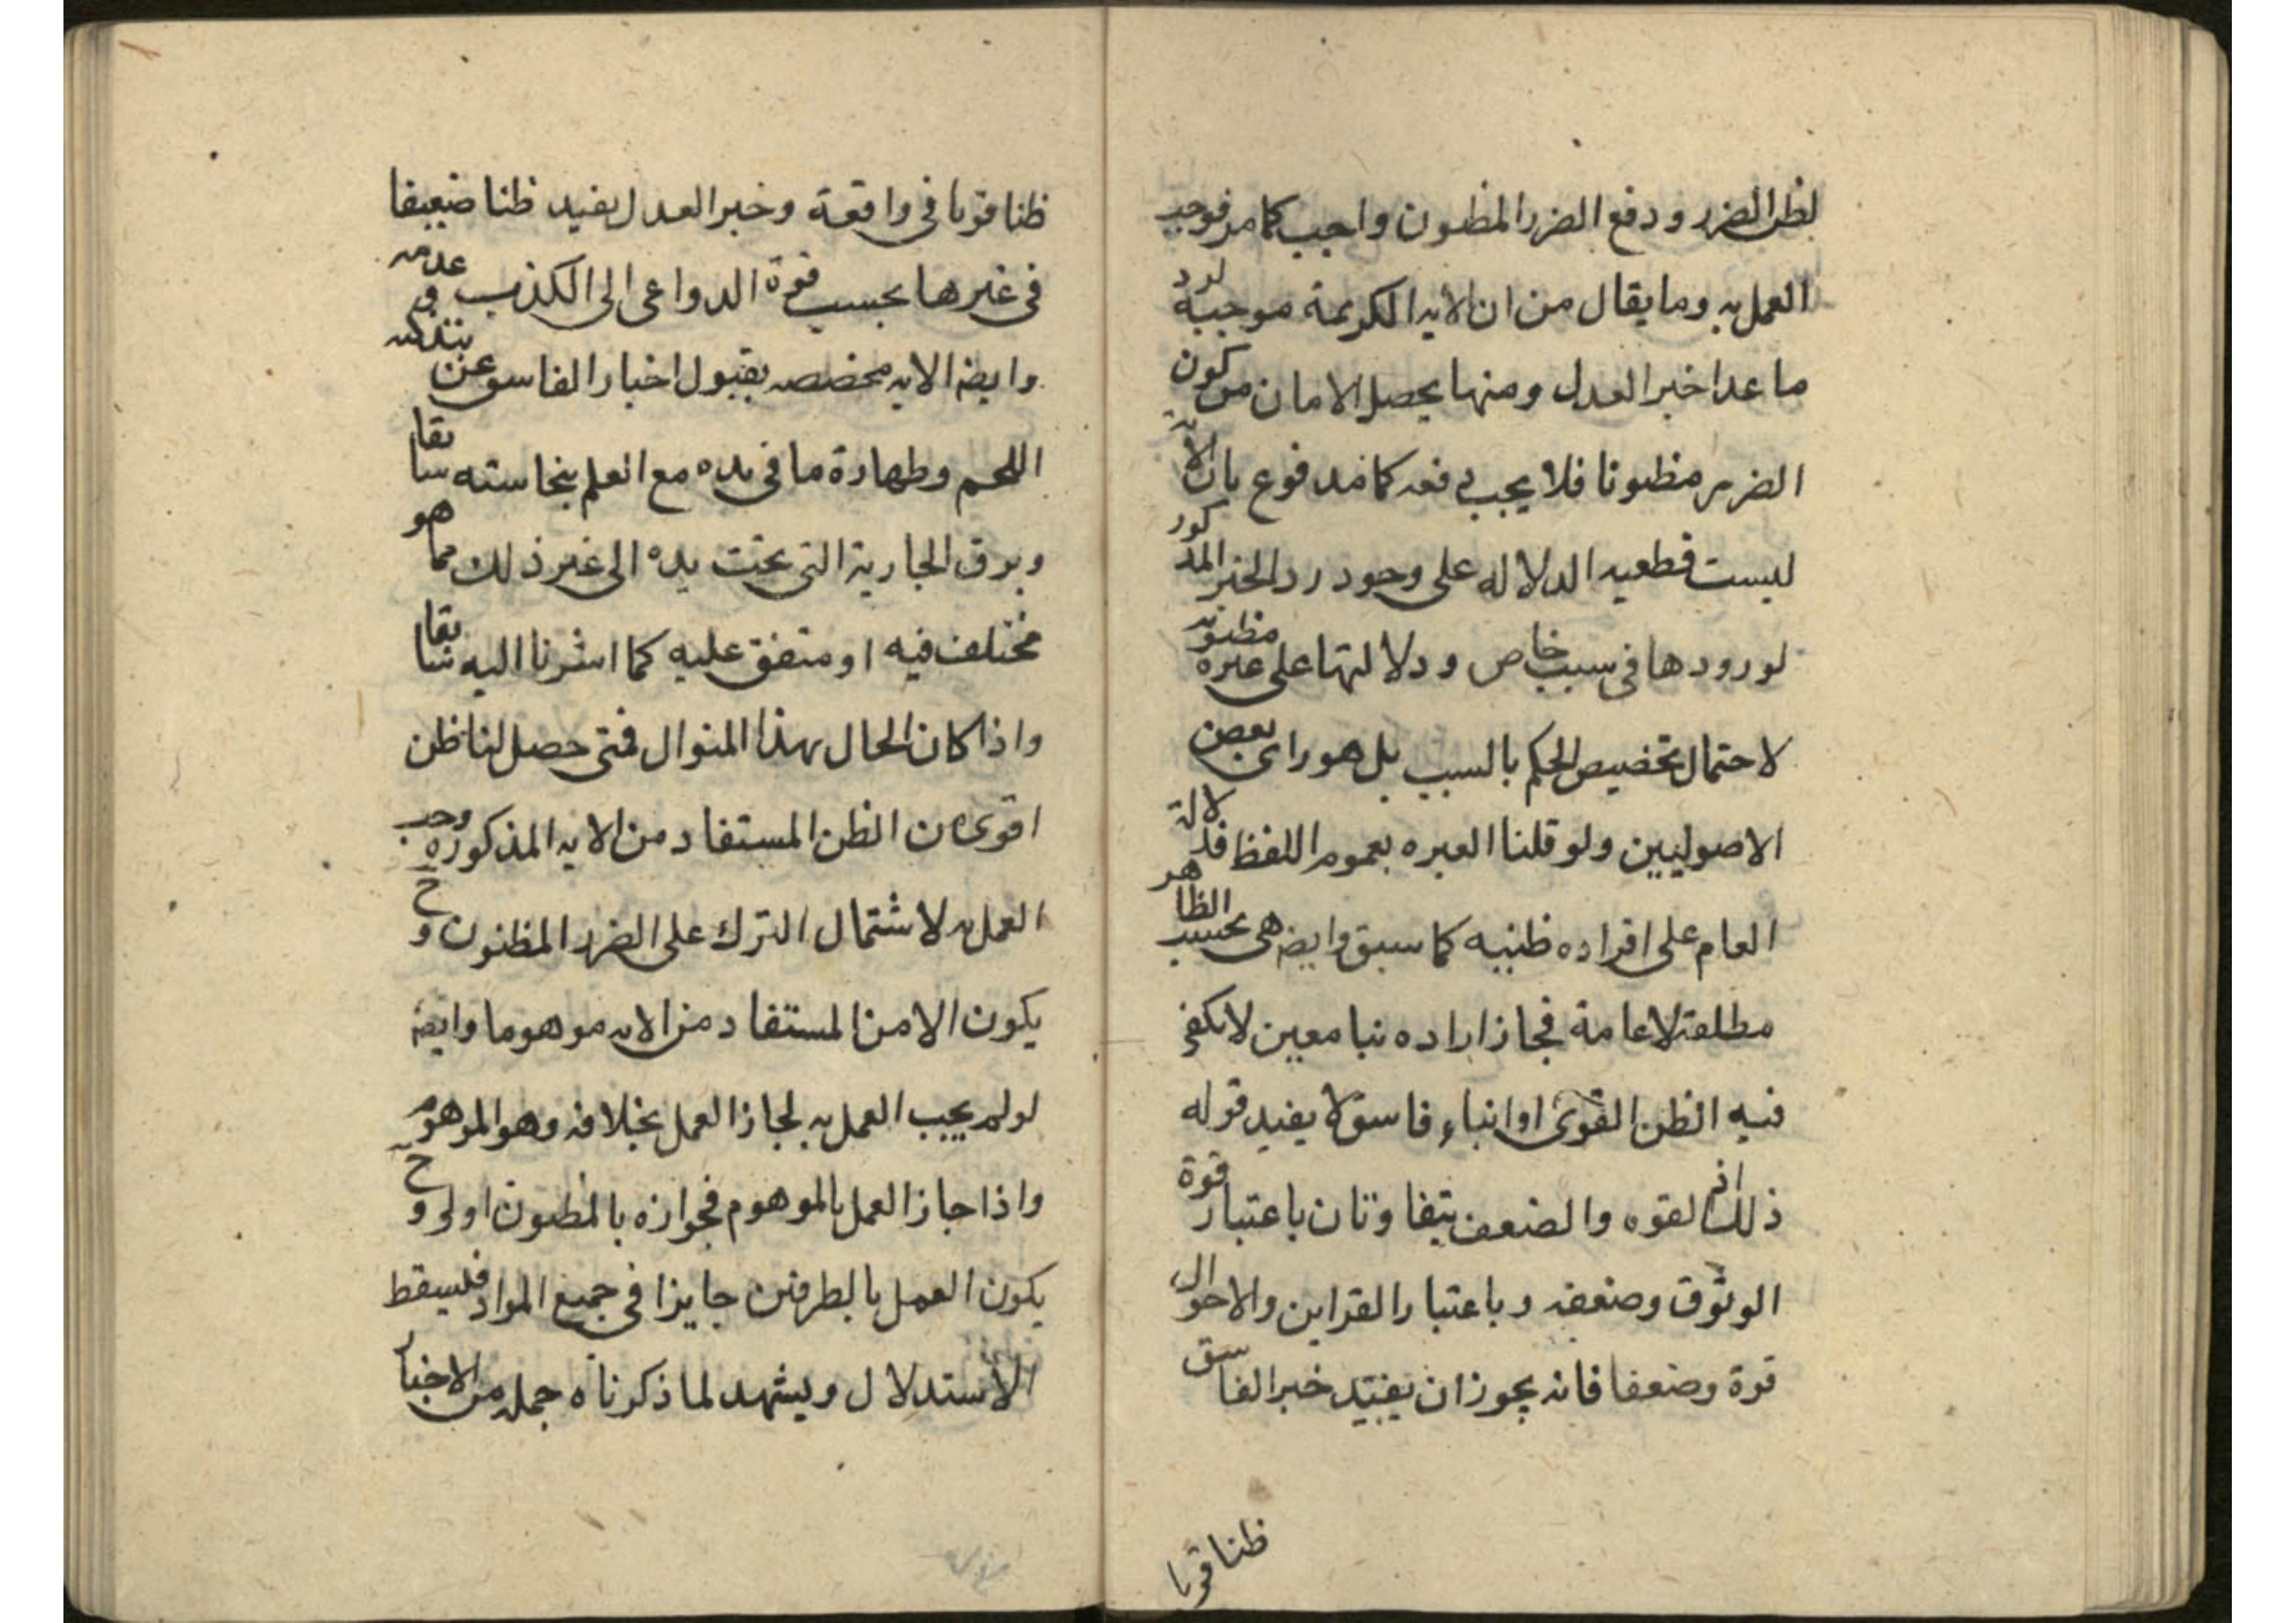 لظن الضرر ودفع الضرر المظنون واجب كما مر فوجب
العمل به وما يقال من ان الايه الكريمة موجبة لرد
ما عدا خبر العدل ومنها يحصل الامان من كون
الضرر مظنونا فلا يجب دفعه كما مدفوع بان الاية
ليست قطعيه الدلاله على وجود رد الخبر المذكور
لورودها فى سبب خاص ودلالتها على غيره مظنونه
لاحتمال تخصيص الحكم بالسبب بل هو راى بعض
الاصوليين ولو قلنا العبره بعموم اللفظ فدلالة
العام على افراده ظنيه كما سبق وايضا هى بحسب الظاهر
مطلقة لا عامة فجاز اراده نبا معين لا يكفى
فيه الظن القوى او انباء فاسق لا يفيد قوله
ذلك اذ القوه والضعف يتفاوتان باعتبار قوة
الوثوق وضعفه وباعتبار القراين والاحوال
قوة وضعفا فانه يجوز ان يفيد خبر الفاسق
ظنا قويا
ظنا قويا فى واقعة وخبر العدل يفيد ظنا ضعيفا
فى غيرها بحسب قوة الدواعى الى الكذب وعدمه
وايضا الايه مخصصه بقبول اخبار الفاسق عن تذكيه
اللحم وطهارة ما فى يده مع العلم بنجاسته سابقا
وبرق الجارية التى تحت يده الى غير ذلك مما هو
مختلف فيه او متفق عليه كما اشرنا اليه سابقا
واذا كان الحال بهذا المنوال فمتى حصل لنا ظن
اقوى من الظن المستفاد من الايه المذكوره وجب
العمل به لاشتمال الترك على الضرر المظنون وح
يكون الامن المستفاد من الايه موهوما وايضا
لو لم يجب العمل به لجاز العمل بخلافه وهو الموهوم
واذا جاز العمل بالموهوم فجوازه بالمظنون اولى وح
يكون العمل بالطرفين جايزا فى جميع المواد فليسقط
الاستدلال ويشهد لما ذكرناه جمله من الاخبار